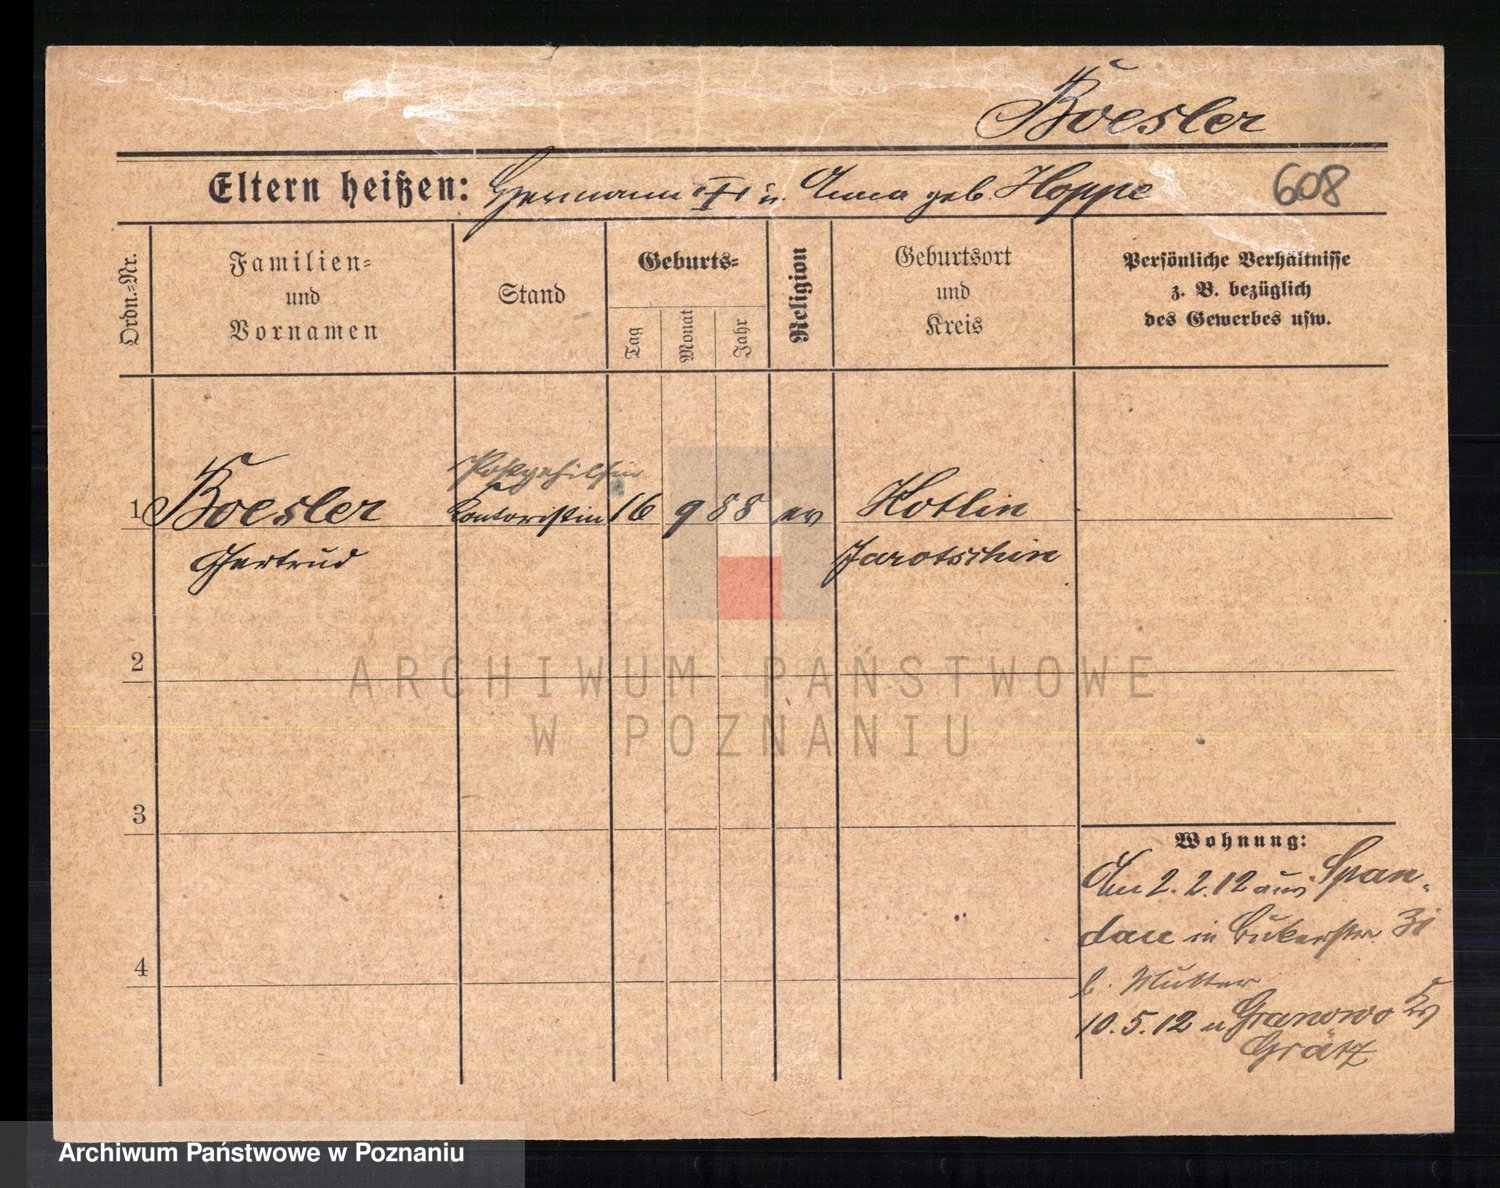 Boesler
Eltern heißen: Hermann u. Anna geb. Hoppe
608
Ordn.-Nr.
Familien-
und
Vornamen
Stand
Geburts-
Tag
Monat
Jahr
Religion
Geburtsort
und
Kreis
Persönliche Verhältnisse
z. B. bezüglich
des Gewerbes usw.
Postgehilfin
1 Boesler Kontoristin 16 9 88 ev Kotlin
Gertrud Jarotschin
2
ARCHIWUM PAŃSTWOWE
W POZNANIU
3
Wohnung:
Am 2.2.12 aus Span-
dau in Bukerstr. 31
4
b. Mutter
10.5.12 n Granowo Krs
Grätz
Archiwum Państwowe w Poznaniu